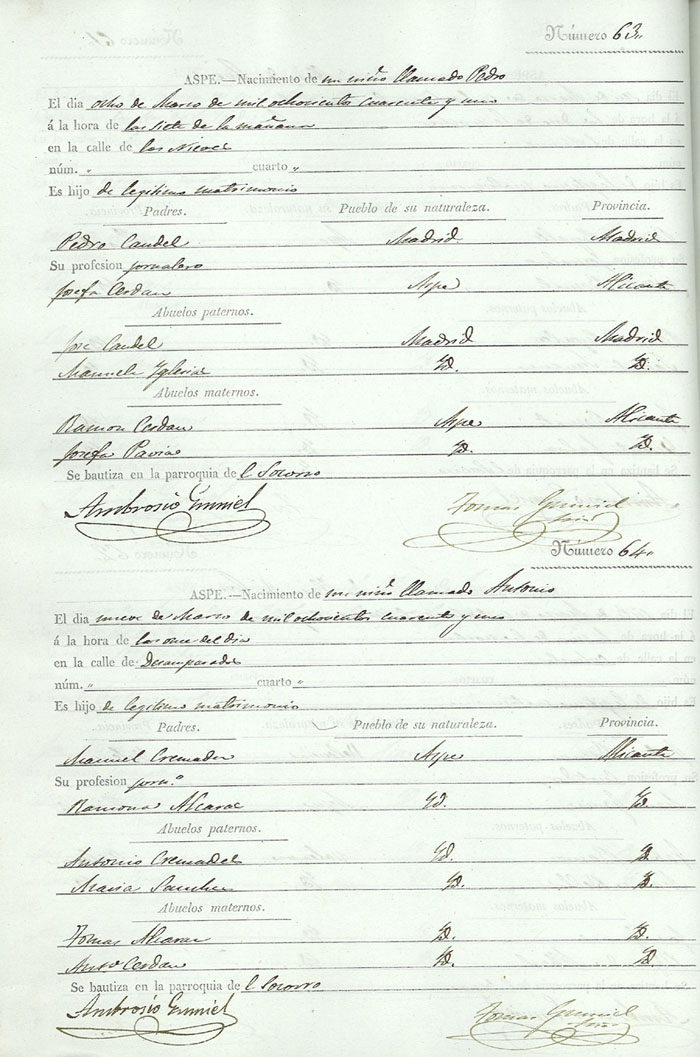 Número 63.
ASPE.—Nacimiento de un niño llamado Pedro
El dia ocho de Marzo de mil ochocientos cuarenta y uno
á la hora de las siete de la mañana
en la calle de las Nieves
núm. " cuarto "
Es hijo de legitimo matrimonio
Padres. Pueblo de su naturaleza. Provincia.
Pedro Candel Madrid Madrid
Su profesion jornalero
Josefa Cerdan Aspe Alicante
Abuelos paternos.
José Candel Madrid Madrid
Manuela Yglesias Yd. Yd.
Abuelos maternos.
Ramon Cerdan Aspe Alicante
Josefa Pavia Yd. Yd.
Se bautiza en la parroquia de l Socorro
Ambrosio Tomas
Número 64.
ASPE.—Nacimiento de un niño llamado Antonio
El dia nueve de Marzo de mil ochocientos cuarenta y uno
á la hora de las once del dia
en la calle de Desamparados
núm. " cuarto "
Es hijo de legitimo matrimonio
Padres. Pueblo de su naturaleza. Provincia.
Manuel Cremades Aspe Alicante
Su profesion jorn.º
Ramona Alcaraz Yd. Yd.
Abuelos paternos.
Antonio Cremades Yd. Yd.
Maria Sanchez Yd. Yd.
Abuelos maternos.
Tomas Alcaraz Yd. Yd.
Cerdan Yd. Yd.
Se bautiza en la parroquia de l Socorro
Ambrosio Tomas